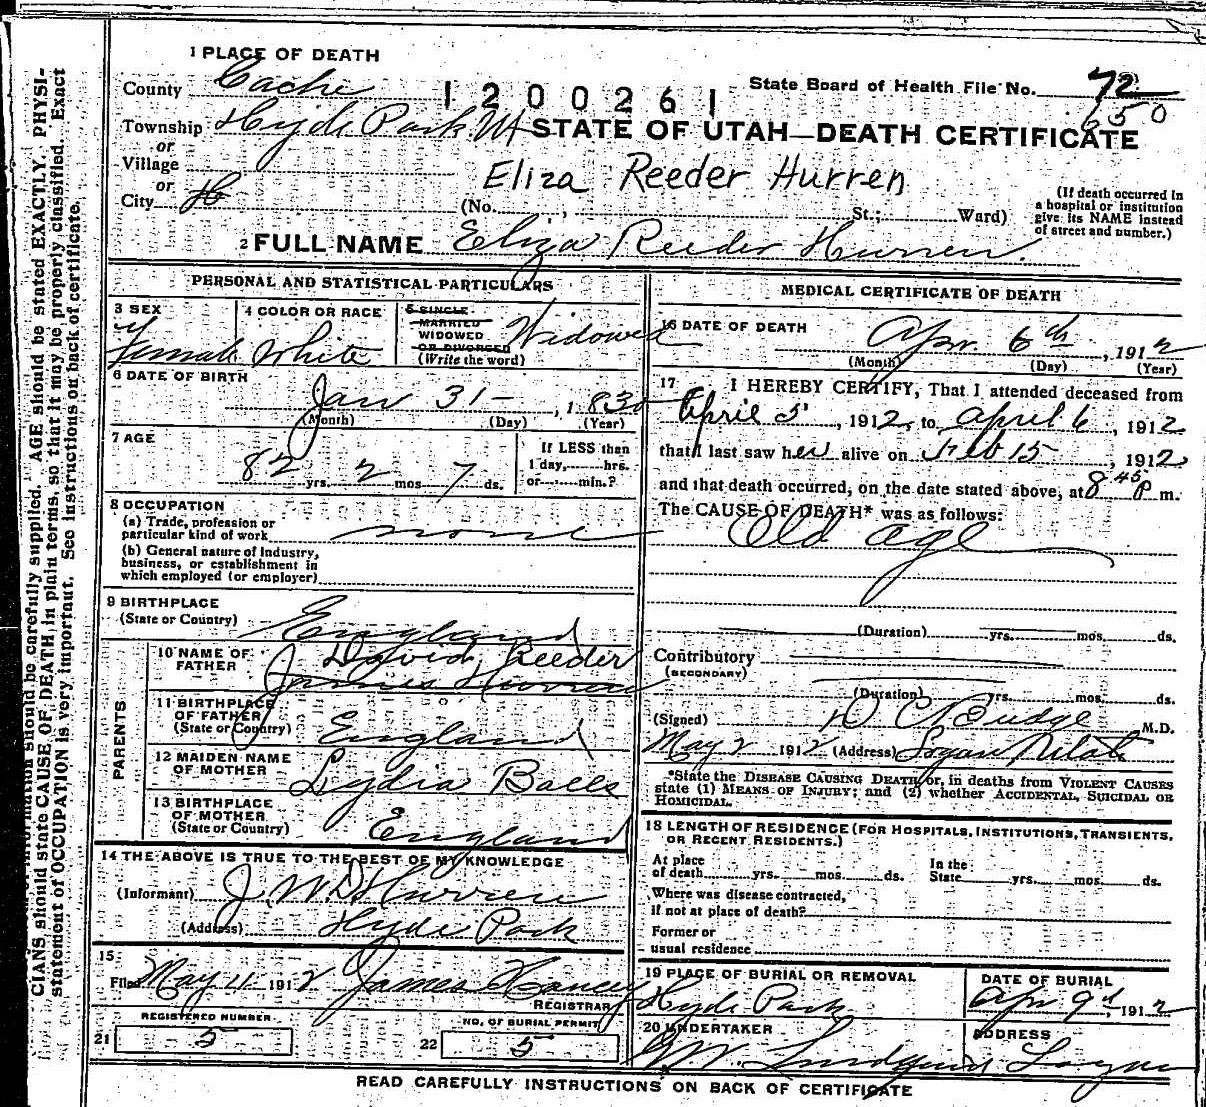 1 PLACE OF DEATH
County Cache
1200261
State Board of Health File No. 72
650
Township Hyde Park Ut
or
Village
or
City
STATE OF UTAH—DEATH CERTIFICATE
Eliza Reeder Hurren
(No. , St.; Ward)
(If death occurred in
a hospital or institution
give its NAME instead
of street and number.)
2 FULL NAME Eliza Reeder Hurren.
PERSONAL AND STATISTICAL PARTICULARS
3 SEX
Female
4 COLOR OR RACE
White
5 SINGLE
MARRIED
WIDOWED
OR DIVORCED
(Write the word)
Widowed
6 DATE OF BIRTH
Jan 31 - , 1830
(Month) (Day) (Year)
7 AGE
82 yrs. 2 mos. 7 ds.
If LESS than
1 day, hrs.
or min.?
8 OCCUPATION
(a) Trade, profession or
particular kind of work none
(b) General nature of Industry,
business, or establishment in
which employed (or employer)
9 BIRTHPLACE
(State or Country) England
PARENTS
10 NAME OF
FATHER David Reeder
James Hurren
11 BIRTHPLACE
OF FATHER
(State or Country) England
12 MAIDEN NAME
OF MOTHER Lydia Balls
13 BIRTHPLACE
OF MOTHER
(State or Country) England
14 THE ABOVE IS TRUE TO THE BEST OF MY KNOWLEDGE
(Informant) J. W. D. Hurren
(Address) Hyde Park
15
Filed May 4 1912 James Hancey
REGISTRAR
REGISTERED NUMBER
21 5
NO. OF BURIAL PERMIT
22 5
MEDICAL CERTIFICATE OF DEATH
16 DATE OF DEATH
Apr. 6th , 1912
(Month) (Day) (Year)
17 I HEREBY CERTIFY, That I attended deceased from
April 5 , 1912, to April 6 , 1912
that I last saw her alive on Feb 15 , 1912,
and that death occurred, on the date stated above, at 8 45 P m.
The CAUSE OF DEATH* was as follows:
Old age
(Duration) yrs. mos. ds.
Contributory
(SECONDARY)
(Duration) yrs. mos. ds.
(Signed) D C Budge M.D.
May 2 1912 (Address) Logan Utah
*State the DISEASE CAUSING DEATH, or, in deaths from VIOLENT CAUSES
state (1) MEANS OF INJURY; and (2) whether ACCIDENTAL, SUICIDAL OR
HOMICIDAL.
18 LENGTH OF RESIDENCE (FOR HOSPITALS, INSTITUTIONS, TRANSIENTS,
OR RECENT RESIDENTS.)
At place
of death yrs. mos. ds.
In the
State yrs. mos. ds.
Where was disease contracted,
if not at place of death?
Former or
usual residence
19 PLACE OF BURIAL OR REMOVAL
Hyde Park
DATE OF BURIAL
Apr 9th, 1912
20 UNDERTAKER
ADDRESS
Logan
READ CAREFULLY INSTRUCTIONS ON BACK OF CERTIFICATE
information should be carefully supplied. AGE should be stated EXACTLY. PHYSI-
CIANS should state CAUSE OF DEATH in plain terms, so that it may be properly classified. Exact
statement of OCCUPATION is very important. See instructions on back of certificate.